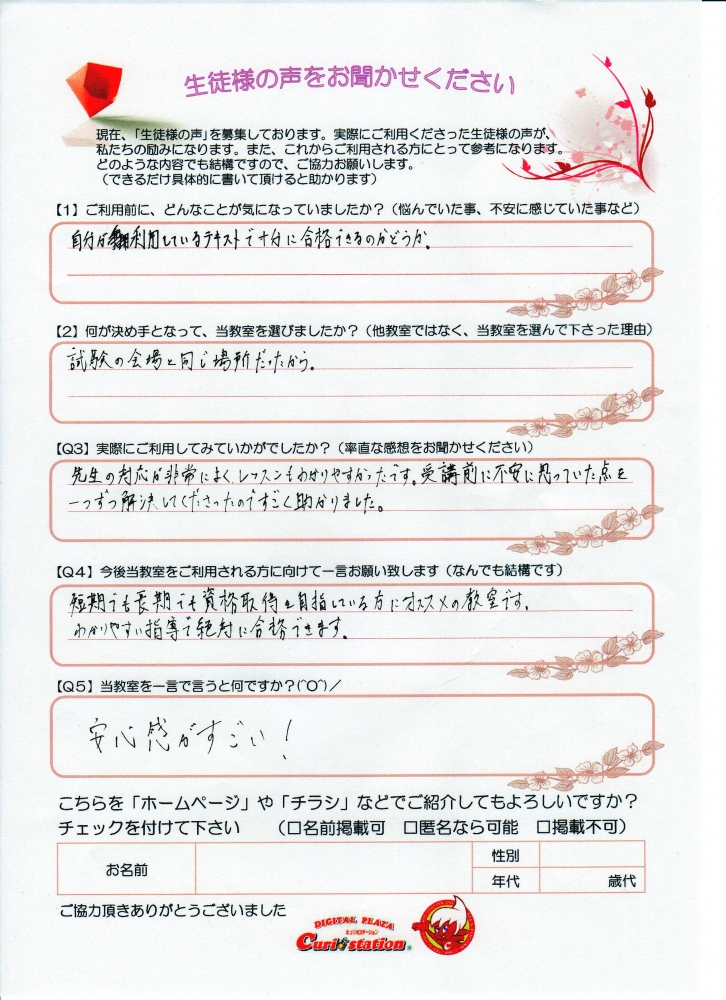 生徒様の声をお聞かせください
現在、「生徒様の声」を募集しております。実際にご利用くださった生徒様の声が、
私たちの励みになります。また、これからご利用される方にとって参考になります。
どのような内容でも結構ですので、ご協力お願いします。
（できるだけ具体的に書いて頂けると助かります）
【1】ご利用前に、どんなことが気になっていましたか？（悩んでいた事、不安に感じていた事など）
自分が利用しているテキストで十分に合格できるのかどうか。
【2】何が決め手となって、当教室を選びましたか？（他教室ではなく、当教室を選んで下さった理由）
試験の会場と同じ場所だったから。
【Q3】実際にご利用してみていかがでしたか？（率直な感想をお聞かせください）
先生の対応が非常によく、レッスンもわかりやすかったです。受講前に不安に思っていた点を
一つずつ解決してくださったのですごく助かりました。
【Q4】今後当教室をご利用される方に向けて一言お願い致します（なんでも結構です）
短期でも長期でも資格取得を目指している方にオススメの教室です。
わかりやすい指導で絶対に合格できます。
【Q5】当教室を一言で言うと何ですか？(^O^)／
安心感がすごい！
こちらを「ホームページ」や「チラシ」などでご紹介してもよろしいですか？
チェックを付けて下さい　（□名前掲載可　□匿名なら可能　□掲載不可）
お名前　性別
年代　歳代
ご協力頂きありがとうございました
DIGITAL PLAZA
キュリオステーション
Curio station